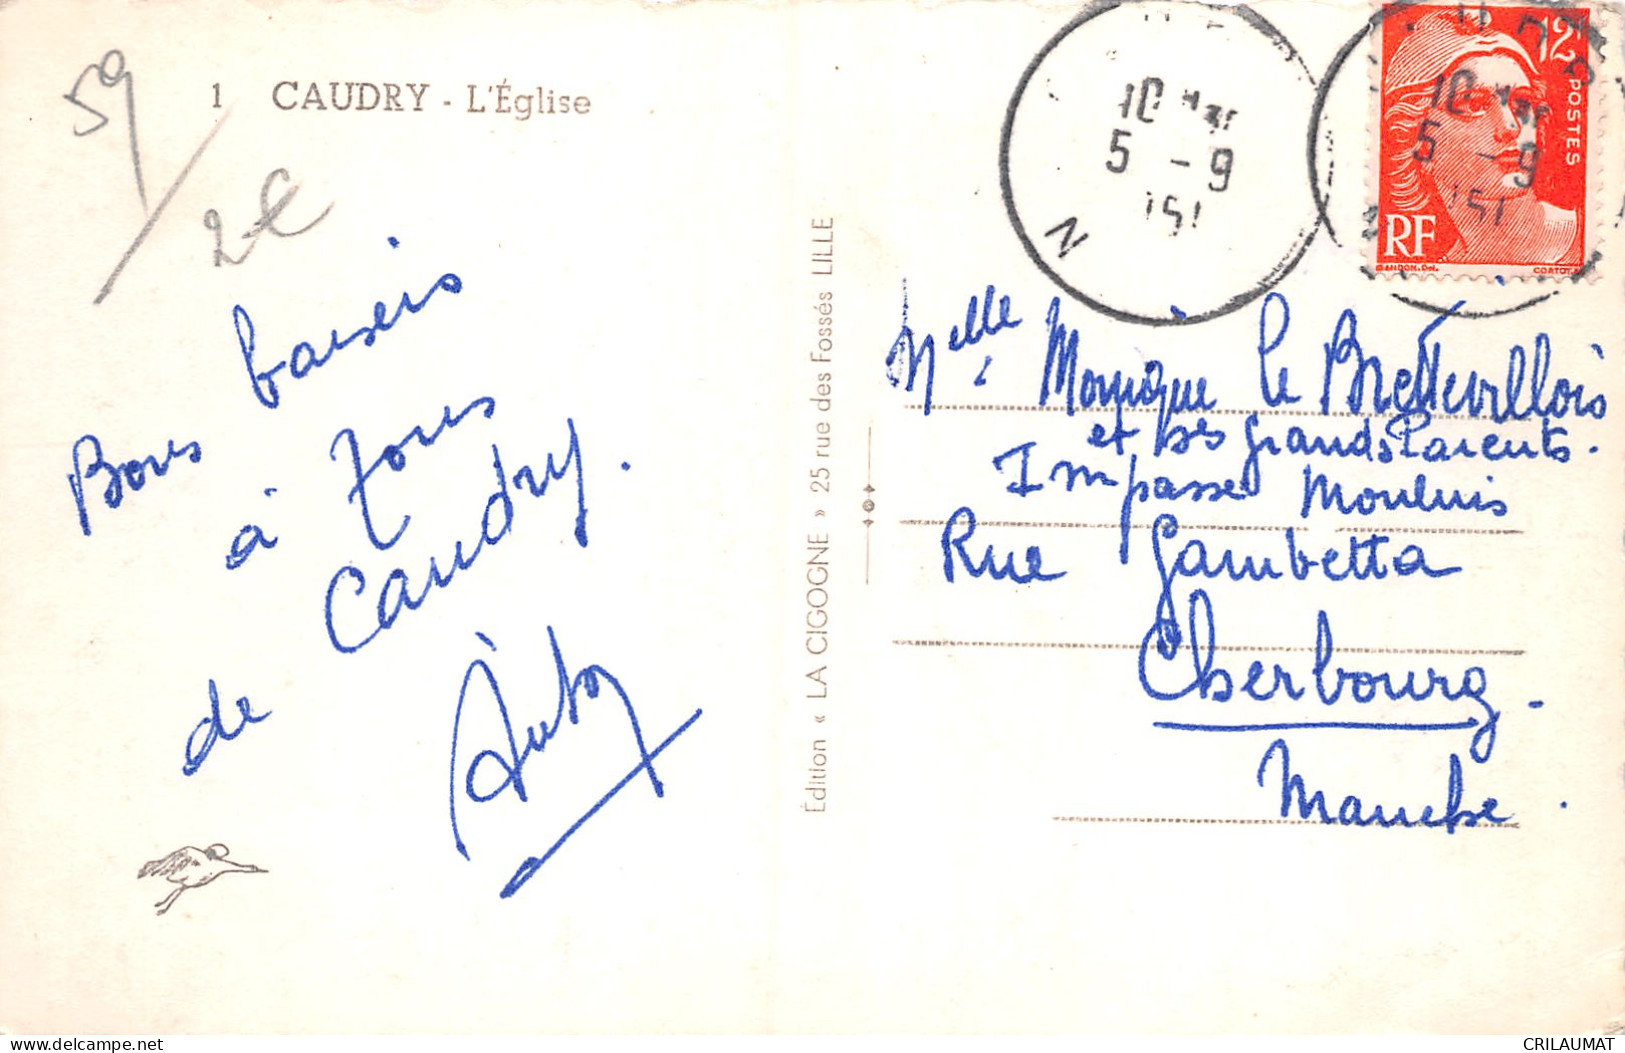 59
1 CAUDRY - L'Église
2€
Bons baisers
à tous
de Caudry.
Édition « LA CIGOGNE » 25 rue des Fossés LILLE
10
5 - 9
1951
12F
POSTES
RF
GANDON.Del.
CORTOT
10
5 - 9
1951
Melle Monique le Brettevillois
et ses grands Parents.
Impasse Moulins
Rue Gambetta
Cherbourg.
Manche.
CRILAUMAT